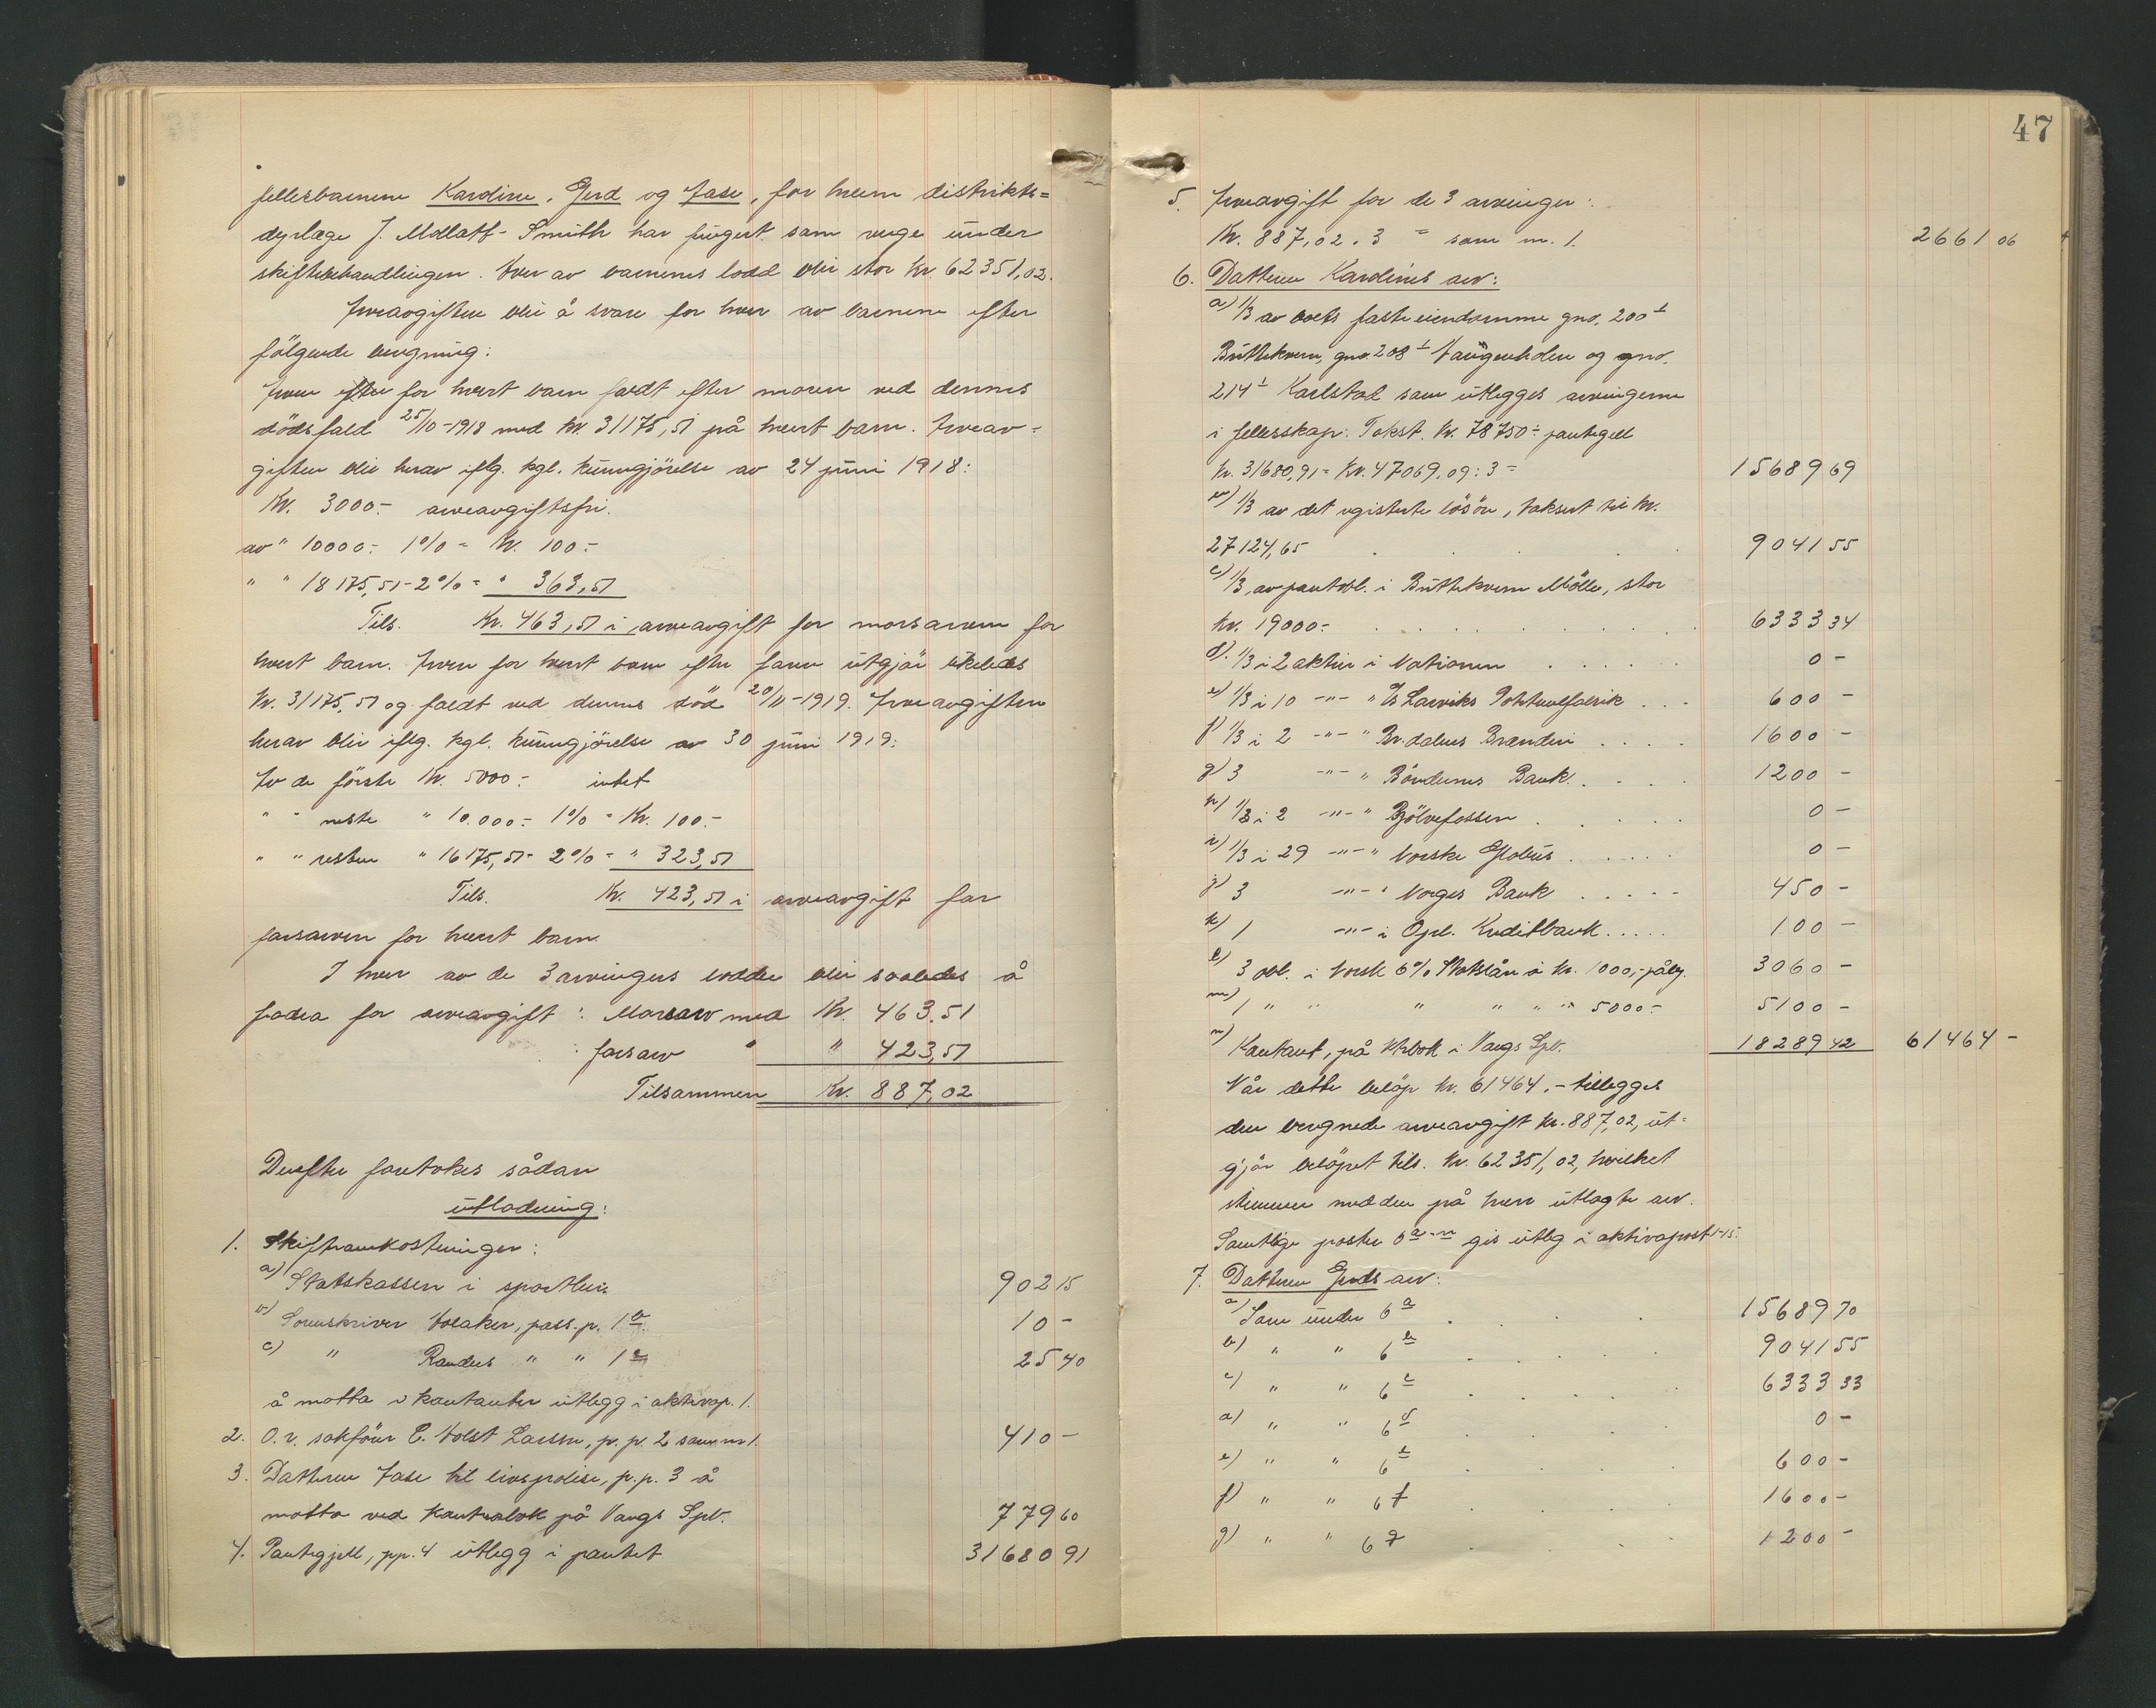 fellesbarnene Kardine, Gerd og Aase, for hvem distrikts=
dyrlæge J. Mollatt-Smith har fungert som verge under
skiftebehandlingen. Hver av barnenes lodd blir stor kr. 62351,02.
Arveavgiften blir å svare for hver av barnene efter
følgende beregning:
Arven efter for hvert barn faldt efter moren ved dennes
dödsfald 25/10-1918 med kr. 31175,51 på hvert barn. Arveav-
giften blir herav iflg. kgl. kunngjörelse av 24 juni 1918:
Kr. 3000.- arveavgiftsfri.
av " 10000.- 1% = Kr. 100.-
" " 18175,51 - 2% = " 363,51
Tils. Kr. 463,51 i arveavgift for morsarven for
hvert barn. Arven for hvert barn efter faren utgjör likeledes
kr. 31175,51 og faldt ved dennes död 20/11-1919. Arveavgiften
herav blir iflg. kgl. kunngjörelse av 30 juni 1919:
Av de förste Kr. 5000.- intet
" " neste " 10.000.- 1% = Kr. 100.-
" " resten " 16175,51 - 2% = " 323,51
Tils. Kr. 423,51 i arveavgift for
farsarven for hvert barn.
I hver av de 3 arvingers lodder blir saaledes å
fradra for arveavgift: Morsarv med Kr. 463.51
farsarv " " 423,51
Tilsammen Kr. 887,02
Derefter foretokes sådan
utlodning:
1. Skifteomkostninger:
a) Statskassen i sportler 902 15
b) Sorenskriver Aaker, pass.p. 1b 10 -
c) " Randers " " 1c 25 40
å motta i kontanter utlegg i aktivap. 1.
2. O.r. sakförer C. Holst Larsen, p.p. 2 som nr 1. 410 -
3. Datteren Aase til livspolise, p.p. 3 å
motta ved kontrabok på Vangs Spb. 779 60
4. Pantegjeld, pp. 4 utlegg i pantet 31680 91
47
5. Arveavgift for de 3 arvinger:
Kr. 887,02 . 3 = som nr. 1. 2661 06
6. Datteren Kardines arv:
a) 1/3 av boets faste eiendomme gno. 200 1
Büttekvern, gno 208 1 Haugenholen og gno.
214 1 Karlstad som utlegges arvingerne
i fellesskap. Takst. kr. 78750.- pantegell
kr. 31680,91 = Kr. 47069.09 : 3 = 15689 69
b) 1/3 av det registrerte lösöre, taksert til kr.
27124,65 9041 55
c) 1/3 av pantobl. i Büttekvern Mölle, stor
kr. 19000.- 6333 34
d) 1/3 i 2 aktier i Nationen 0 -
e) 1/3 i 10 -"- " A/S Larviks Potetmelfabrik 600 -
f) 1/3 i 2 -"- " Br.dalens Brænderi 1600 -
g) 3 -"- " Böndernes Bank 1200 -
h) 1/3 i 2 -"- " Bjölvefossen 0 -
i) 1/3 i 29 -"- " Norske Globus 0 -
j) 3 -"- " Norges Bank 450 -
k) 1 -"- i Opl. Kreditbank 100 -
l) 3 obl. i Norsk 6% Statslån à kr. 1000,- pålyd. 3060 -
m) 1 " " " " " " 5000.- 5100 -
n) Kontant, på ktrbok i Vangs Spb. 18289 42 61464 -
Når dette belöp kr. 61464.- tillegges
den beregnede arveavgift kr. 887,02, ut-
gjör belöpet tils. kr. 62351,02, hvilket
stemmer med den på hver utlagte arv.
Samtlige poster 6 a-n gis utleg i aktivapost 1-15.
7. Datteren Gerds arv:
a) Som under 6 a 15689 70
b) " " 6 b 9041 55
c) " " 6 c 6333 33
d) " " 6 d 0 -
e) " " 6 e 600 -
f) " " 6 f 1600 -
g) " " 6 g 1200 -